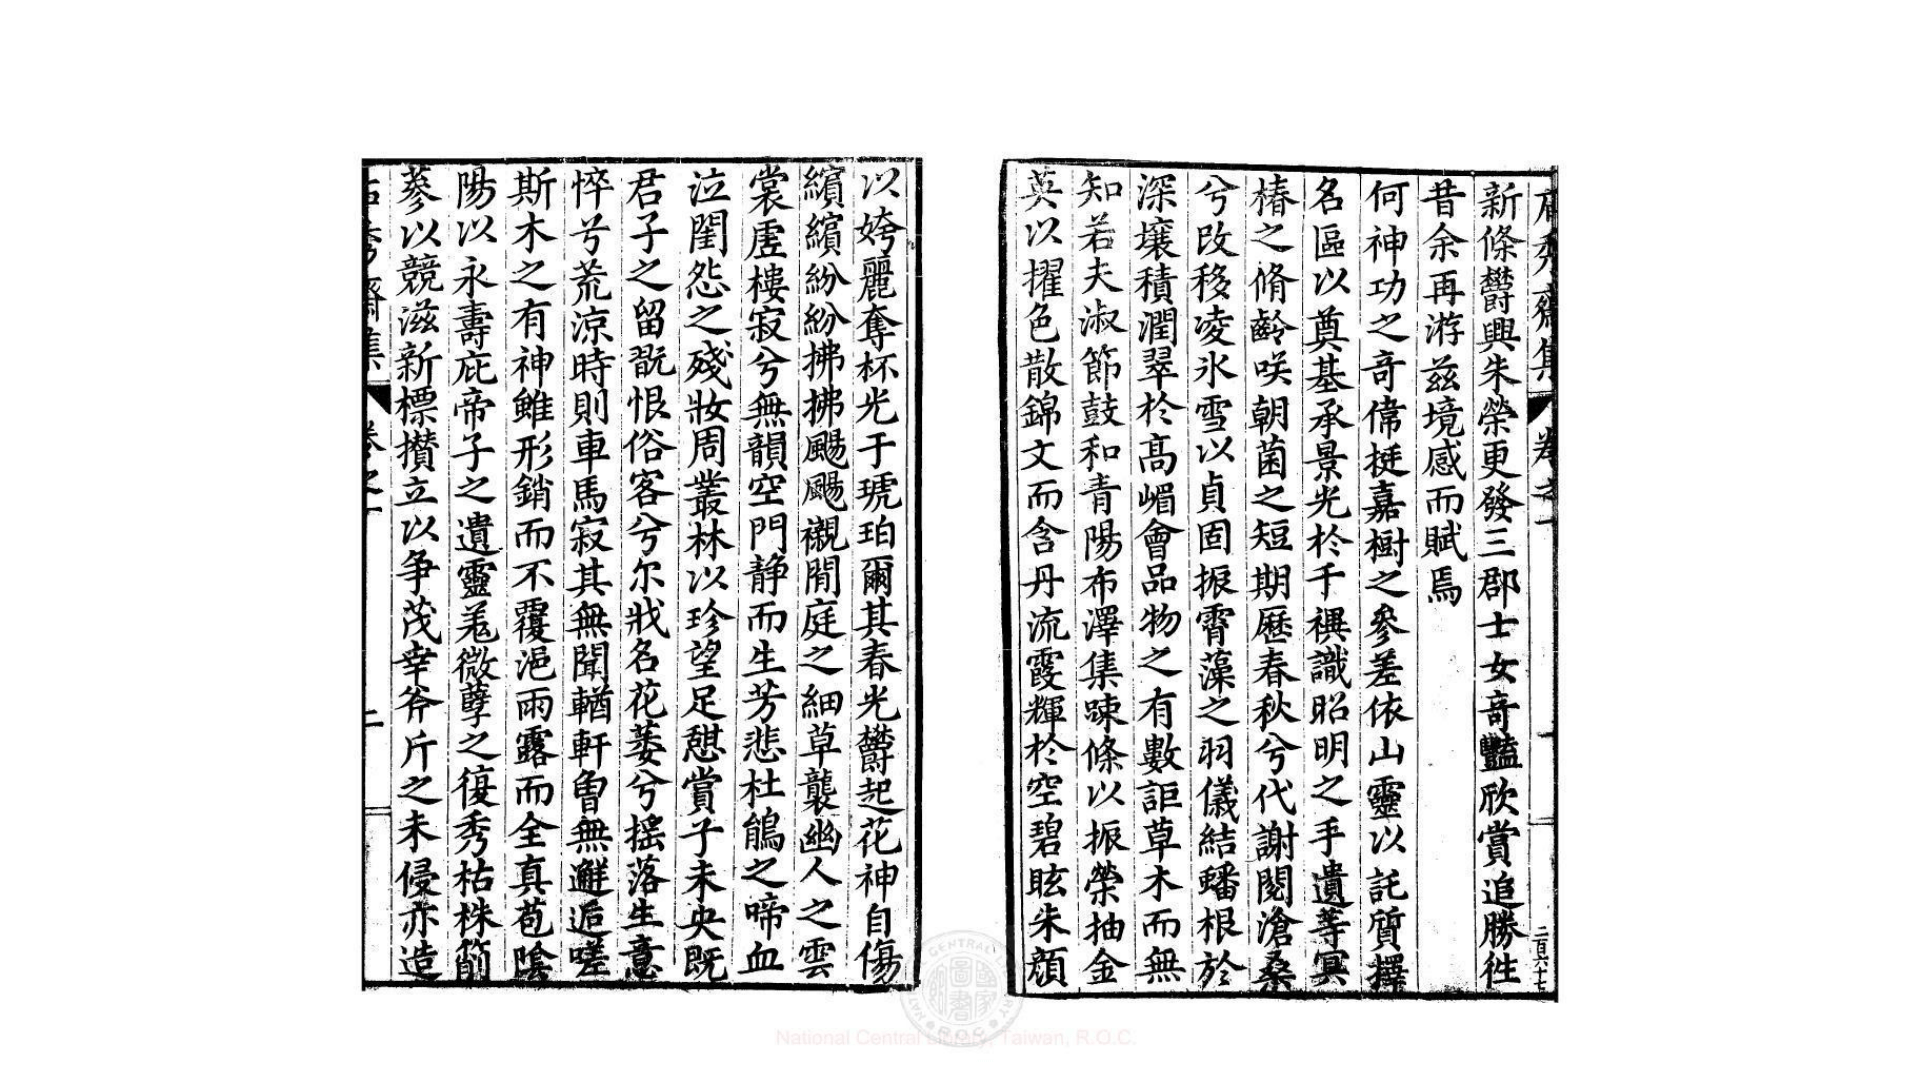 新條欝興朱榮更發三郡士女奇豔欣賞追勝徃
昔余再游兹境感而賦焉
何神功之奇偉挺嘉樹之參差依山靈以託質擇
名區以奠基承景光於千禩識昭明之手遺等冥
椿之脩齡咲朝菌之短期歷春秋兮代謝閱滄桑
兮改移凌氷雪以貞固振霄藻之羽儀結蟠根於
深壤積潤翠於高嵋會品物之有數詎草木而無
知若夫淑節鼓和青陽布澤集踈條以振榮抽金
英以擢色散錦文而含丹流霞輝於空碧眩朱顔
以姱麗奪杯光于琥珀爾其春光欝起花神自傷
繽繽紛紛拂拂颺颺襯閒庭之細草襲幽人之雲
裳虛樓寂兮無韻空門靜而生芳悲杜鵑之啼血
泣閨怨之殘妝周叢林以珍望足憇賞于未央既
君子之留翫恨俗客兮尔戕名花萎兮摇落生意
悴兮荒涼時則車馬寂其無聞輶軒曽無邂逅嗟
斯木之有神雖形銷而不覆浥雨露而全真苞陰
陽以永壽庇帝子之遺靈羗微孽之復秀枯株箾
蔘以競滋新標攅立以爭茂幸斧斤之未侵亦造
卷之一
二
二百六十七
National Central Library, Taiwan, R.O.C.